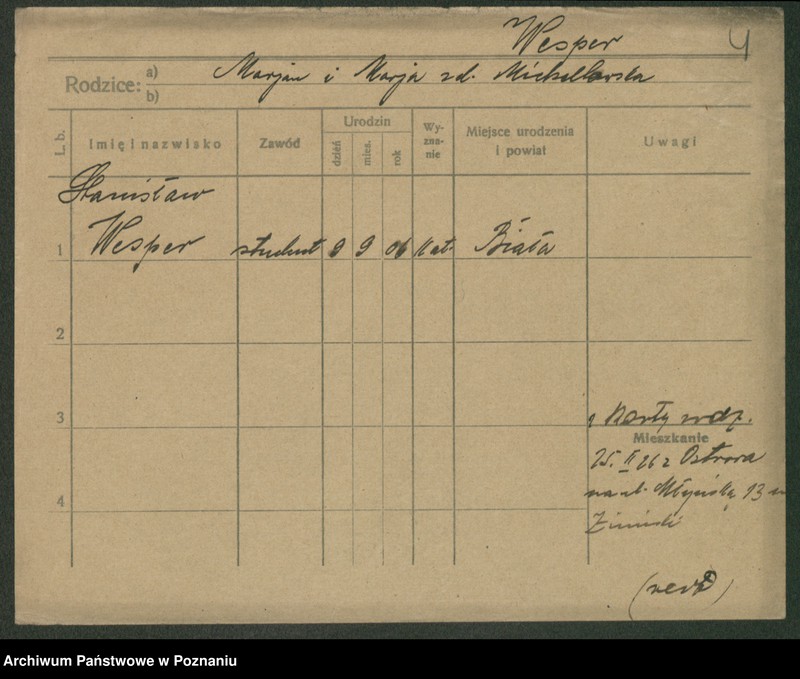 Wesper
4
Rodzice: a) b)
Marjan i Marja zd.
L. b.
Imię i nazwisko
Zawód
Urodzin
dzień
mies.
rok
Wy-
zna-
nie
Miejsce urodzenia
i powiat
Uwagi
Stanisław
1 Wesper student 9 9 06 Kat. Biała
2
3
Mieszkanie
25. II 26 z Ostrowa
na ul. 13
4
Archiwum Państwowe w Poznaniu